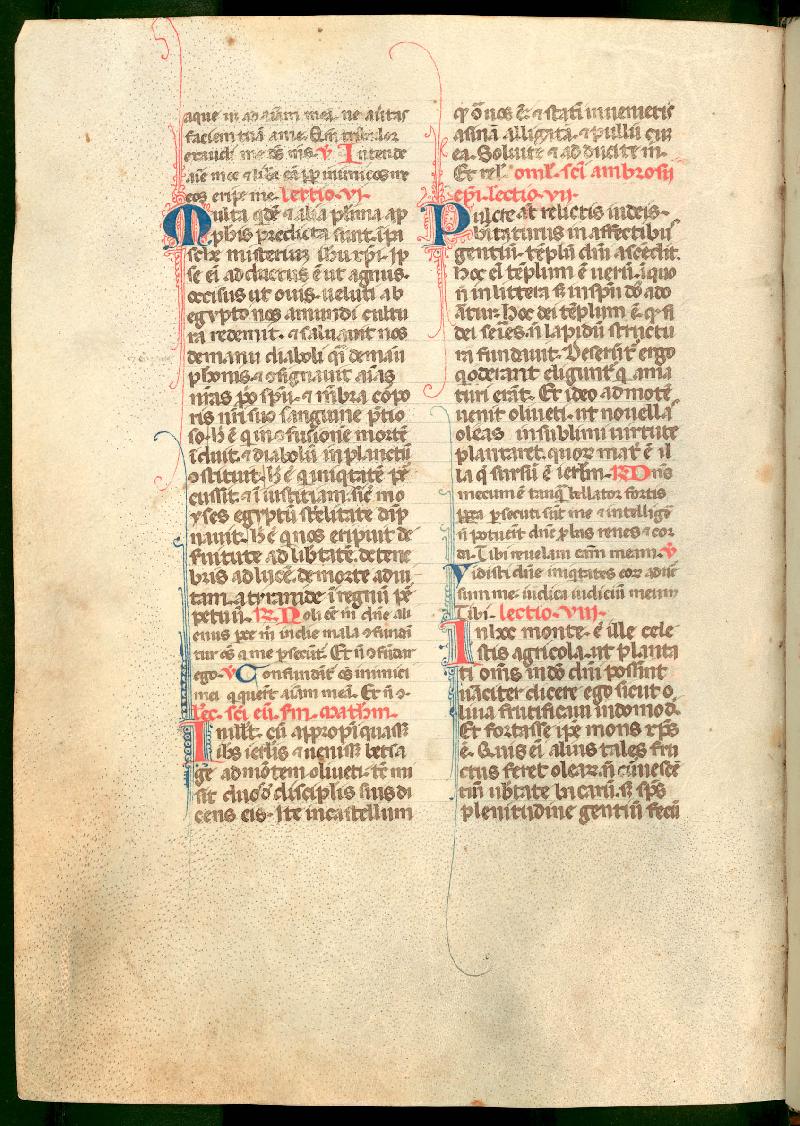 aque in ad aiam meā. ne aūtas
faciem tuā a me. Qm̄ tribulor
exaudi me ds̄ ms̄. v̄ Intende
aīe mee ⁊ libeā eā ꝓp inimicos me
eos eripe me. Lectio vi.
Multa qdē ⁊ alia plima ap
ꝓphis predicta sunt. īpa
sche misterium ihu xp̄i. Ip
se eī adductus ē ut agnus.
occisus ut ouis. ueluti ab
egypto nos amundi cultu
ra redemit. ⁊ saluauit nos
demanu diaboli q̄i demāu
pharonis. ⁊ ɔsignauit aīas
nr̄as ꝑo spū. ⁊ mēbra corpo
ris nr̄i suo sanguine p̄tio
so. h̄ ē qui ɔfusione mortē
īduit. ⁊ diabolū in planctū
ɔstituit. h̄ ē qui iniqtatē ꝑ
cussit. ⁊ iniustitiam. sic̄ mo
yses egyptū st̄elitate dāp
nauit. h̄ ē q nos eripuit de
seruitute ad libtatē. de tene
bris ad lucē. de morte ad ui
tam. a tyrannide ī regnū ꝑ
petuū. R̄ Noli ēē m̄ dn̄e ali
enus ꝑce m̄ in die mala ɔfundā
tur oēs q̄ me ꝑsecūt̄. Et n̄ ɔfūdar
ego. v̄ Confundāt̄ oēs inimici
mei q̄ querūt aīam meā. Et n̄ ɔ.
Lec̄. sc̄i eū. sm̄. Mathm̄.
In illt̄. cū appropīquass̄
ihs̄ ierl̄is ⁊ ueniss̄ betfa
ge ad mōtem oliueti. tē mi
sit duos disciplis suis di
cens eis. Ite in castellum
qd̄ ɔ̄ uos ē. ⁊ statī inuenietis
asinā alligatā. ⁊ pullū cū
ea. Soluite ⁊ adducite m̄.
Et rel̄. omīl. sc̄i ambrosii
ep̄i. lectio. vii.
Pulcre at̄ relictis iudeis.
habitaturus in affectibus
gentiū. tēplū dn̄i ascēdit.
Hoc eī tēplum ē uerū. ī quo
n̄ in littera s̄ in spū dn̄s ado
ratur. Hoc dei tēplum ē. qd̄ fi
dei series. n̄ lapidū structu
ra fundauit. Deserūt̄ ergo
q oderant eligunt̄ q ama
turi erāt. Et ideo ad mōtē
uenit oliueti. ut nouellas
oleas in sublimi uirtute
plantaret. quor mat̄ ē il
la q̄ sursū ē ierl̄m. R̄ Dn̄s
mecum ē tanq̄ bellator fortis
ꝑea ꝑsecuti sūt me ⁊ intelligē
n̄ potuerūt dn̄e ꝓbas renes ⁊ cor
da. Tibi reuelaui cām meam. v̄
Vidisti dn̄e iniqtates eor̄ adūs̄
sum me. iudica iudiciū meum
Tibi. Lectio. viii.
In hoc monte. ē ille cele
stis agricola. ut planta
ti om̄s in domo dn̄i possint
uiritim dicere ego sicut o
liua fructificans in domo dī.
Et fortasse ipe mons xp̄s
ē. Quis eī alius tales fru
ctus feret olear̄. n̄ curuescē
tiū ubtate bacarū. s̄ sps̄
plenitudine gentiū fecū